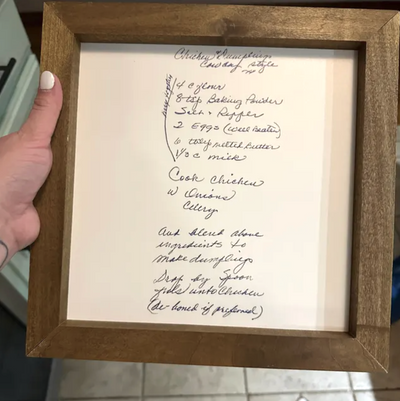 Chicken & Dumplings
Cowboy style
4 c flour
8 tsp Baking Powder
Salt + Pepper
2 Eggs (Well Beaten)
6 tbsp melted Butter
1 1/3 c milk
Cook Chicken
w/ Onions
Celery
And blend above
ingredients to
make dumplings
Drop by Spoon
fuls into Chicken
(de-boned if preferred)